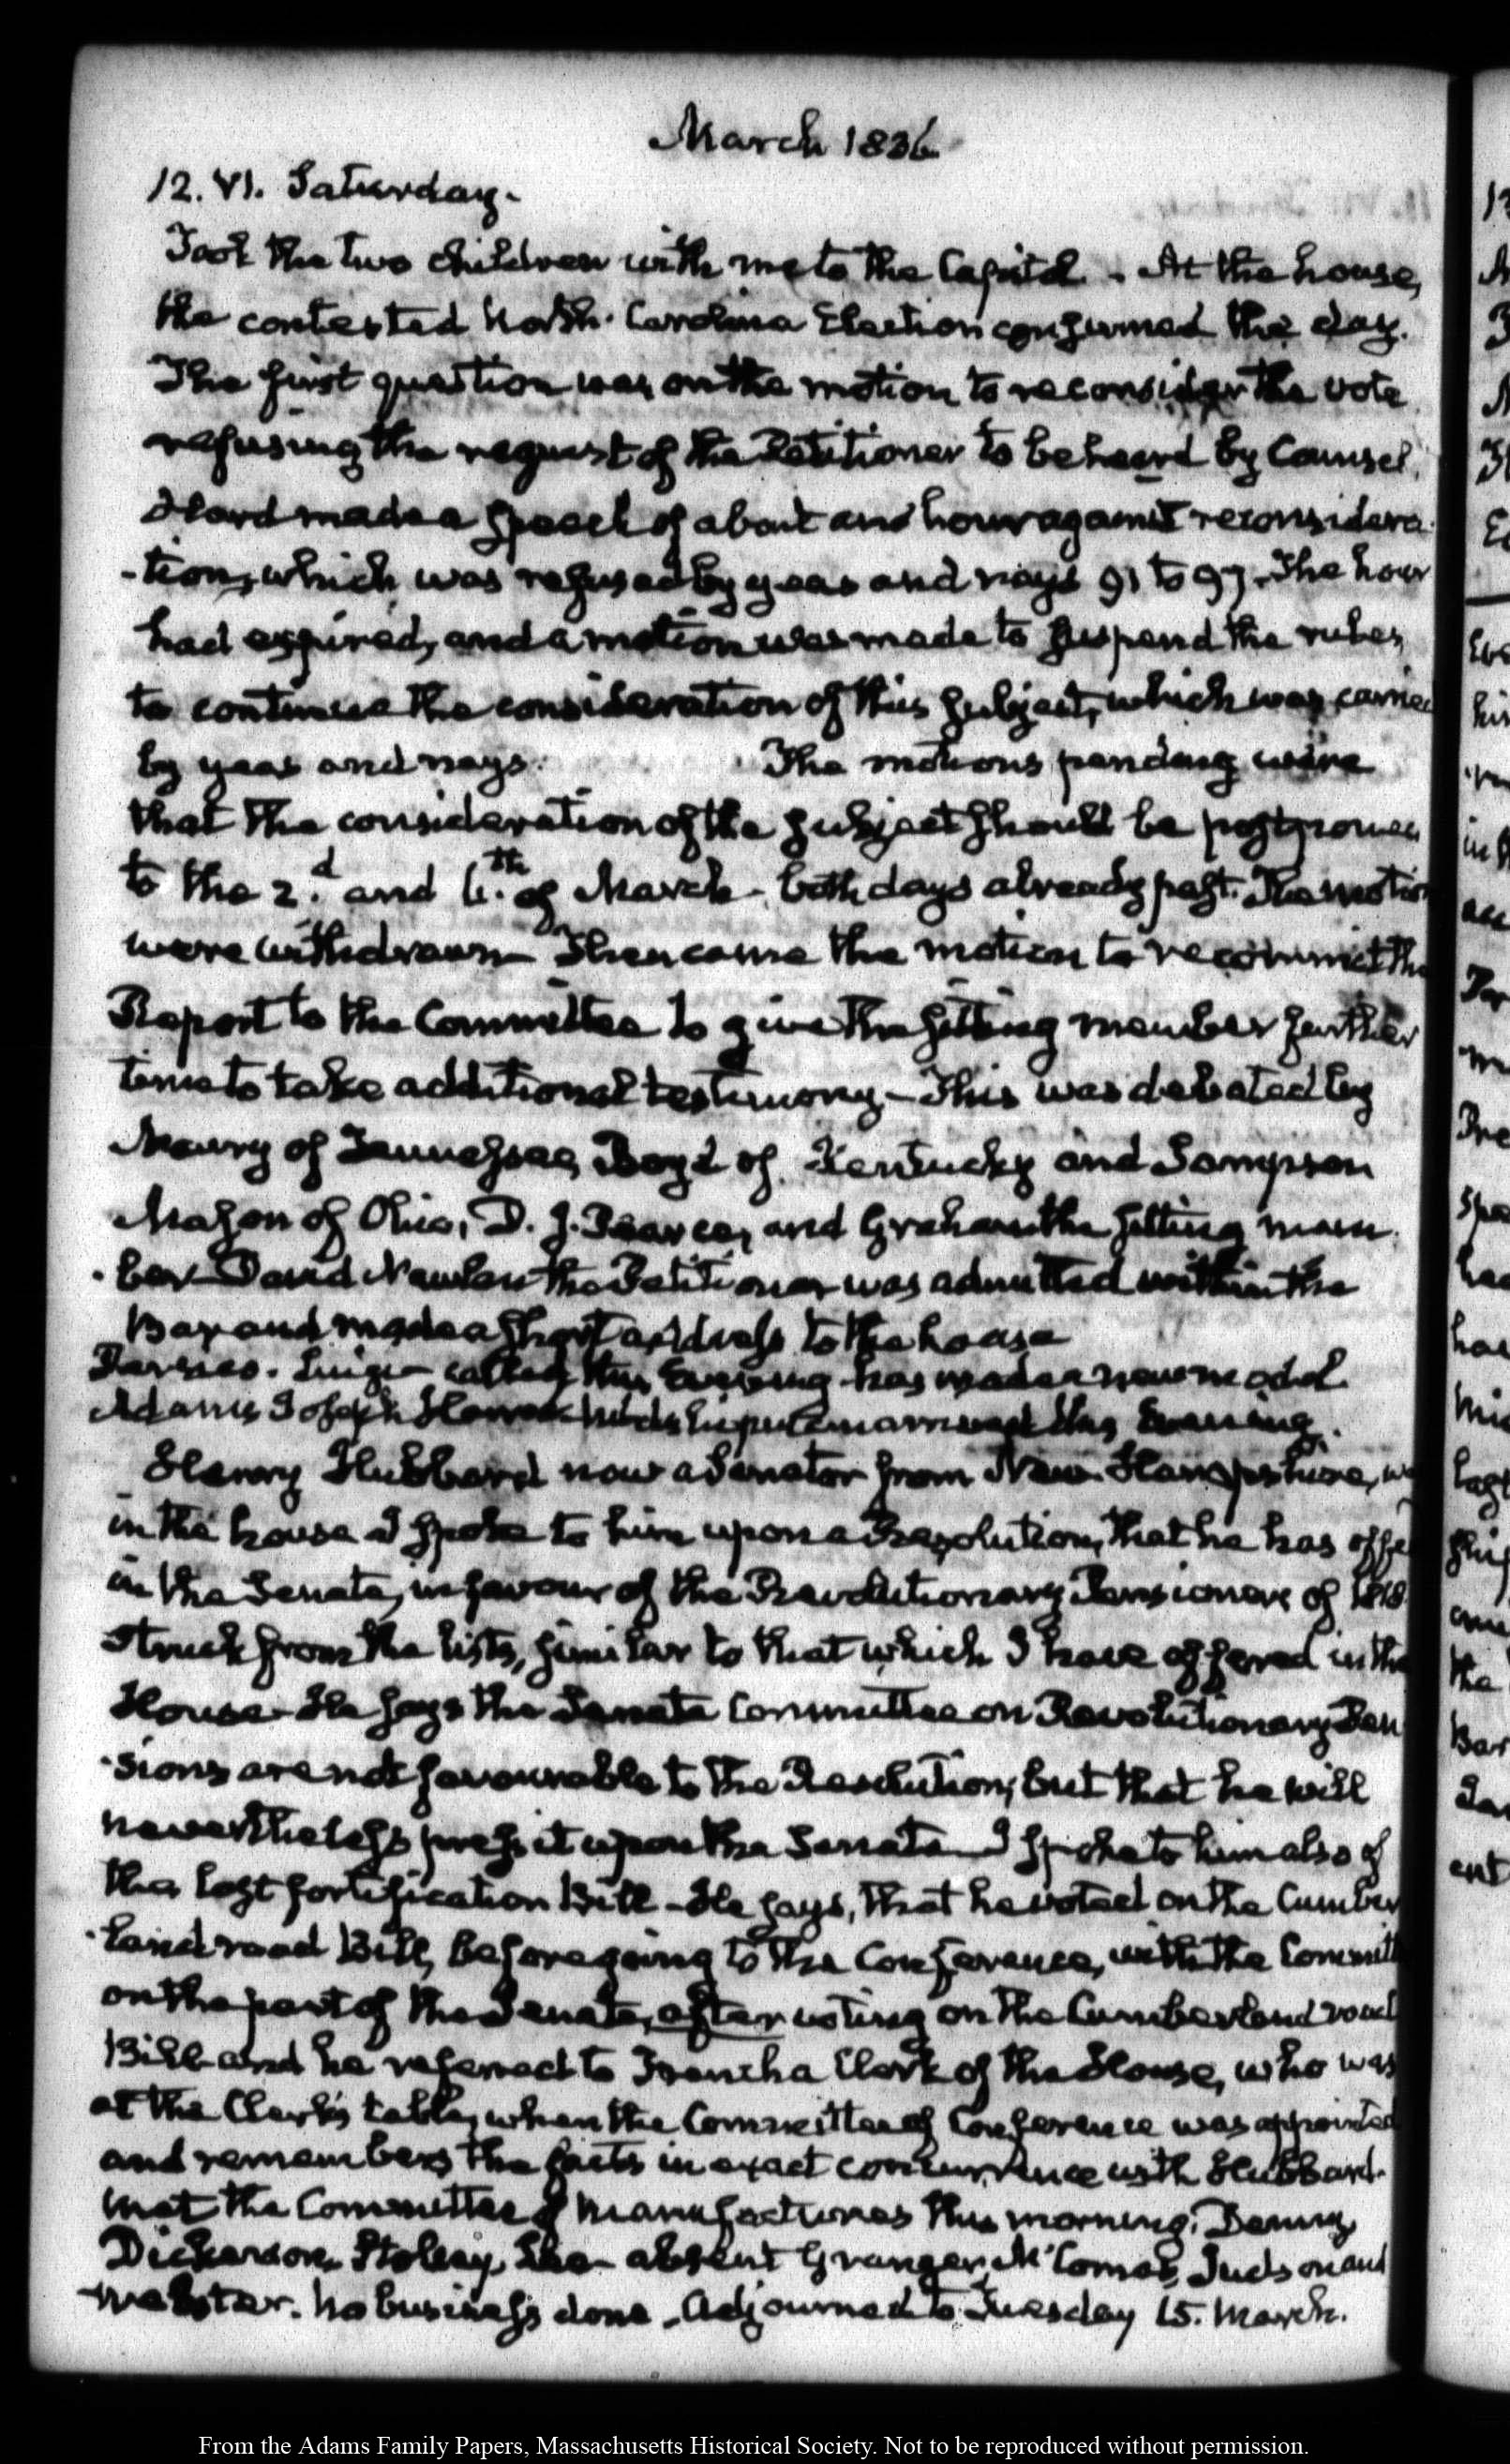 March 1836
12. VI. Saturday.
Took the two children with me to the Capitol. At the house,
the contested North-Carolina Election consumed the day.
The first question was on the motion to reconsider the vote
refusing the request of the Petitioner to be heard by Counsel.
Hard made a speech of about an hour against reconsidera-
-tion, which was refused by yeas and nays 91 to 97. The hour
had expired, and a motion was made to suspend the rules,
to continue the consideration of this subject, which was carried
by yeas and nays. The motions pending were
that the consideration of the subject should be postponed
to the 2.d and 6.th of March, both days already past. The motions
were withdrawn. Then came the motion to recommit the
Report to the Committee to give the sitting member further
time to take additional testimony. This was debated by
Maury of Tennessee, Boyd of Kentucky and Sampson
Mason of Ohio, D. J. Pearce, and Graham the sitting mem-
-ber. David Newland the Petitioner was admitted within the
Bar and made a short address to the house
Persico. Luigi - called this Evening - has made a new model
Adams Joseph married this Evening.
Henry Hubbard now a Senator from New-Hampshire, was
in the house. I spoke to him upon a Resolution, that he has offe
in the Senate, in favour of the Revolutionary Pensioners of 1818
struck from the lists, similar to that which I have offered in the
House. He says the Senate Committee on Revolutionary Pen
-sions are not favourable to the Resolution, but that he will
nevertheless press it upon the Senate. I spoke to him also of
the lost fortification Bill. He says, that he voted on the Cumber
-land road Bill, before going to the Conference, with the Committ
on the part of the Senate, after voting on the Cumberland road
Bill and he referred to French a Clerk of the House, who was
at the Clerk's table, when the Committee of Conference was appointed
and remembers the facts in exact concurrence with Hubbard.
Met the Committee of Manufactures this morning. Denny,
Dickerson, absent Granger, McComas, Judson and
Webster. No business done. Adjourned to Tuesday 15. March.
From the Adams Family Papers, Massachusetts Historical Society. Not to be reproduced without permission.